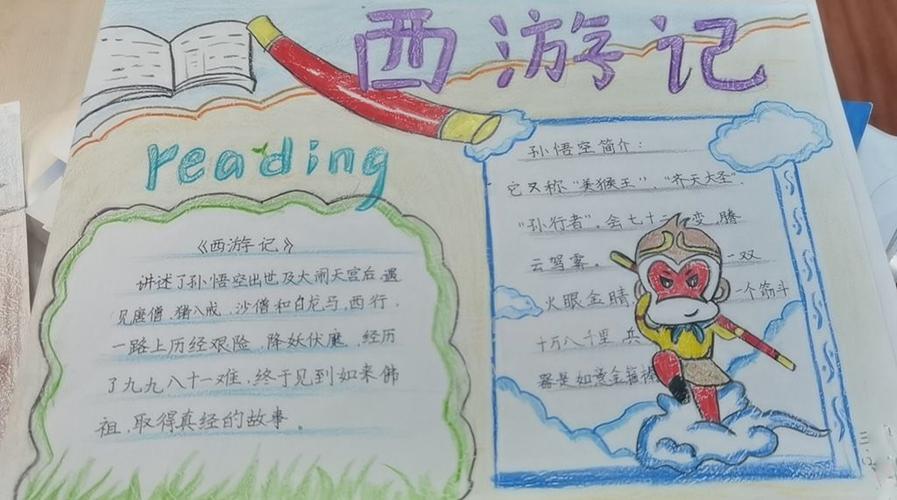 西游记
reading
《西游记》
讲述了孙悟空出世及大闹天宫后,遇
见唐僧、猪八戒、沙僧和白龙马,西行,
一路上历经艰险、降妖伏魔、经历
了九九八十一难,终于见到如来佛
祖,取得真经的故事。
孙悟空简介:
它又称“美猴王”、“齐天大圣”
“孙行者”。会七十二变、腾
云驾雾。一双
火眼金睛 一个筋斗
十万八千里,兵
器是如意金箍棒
三